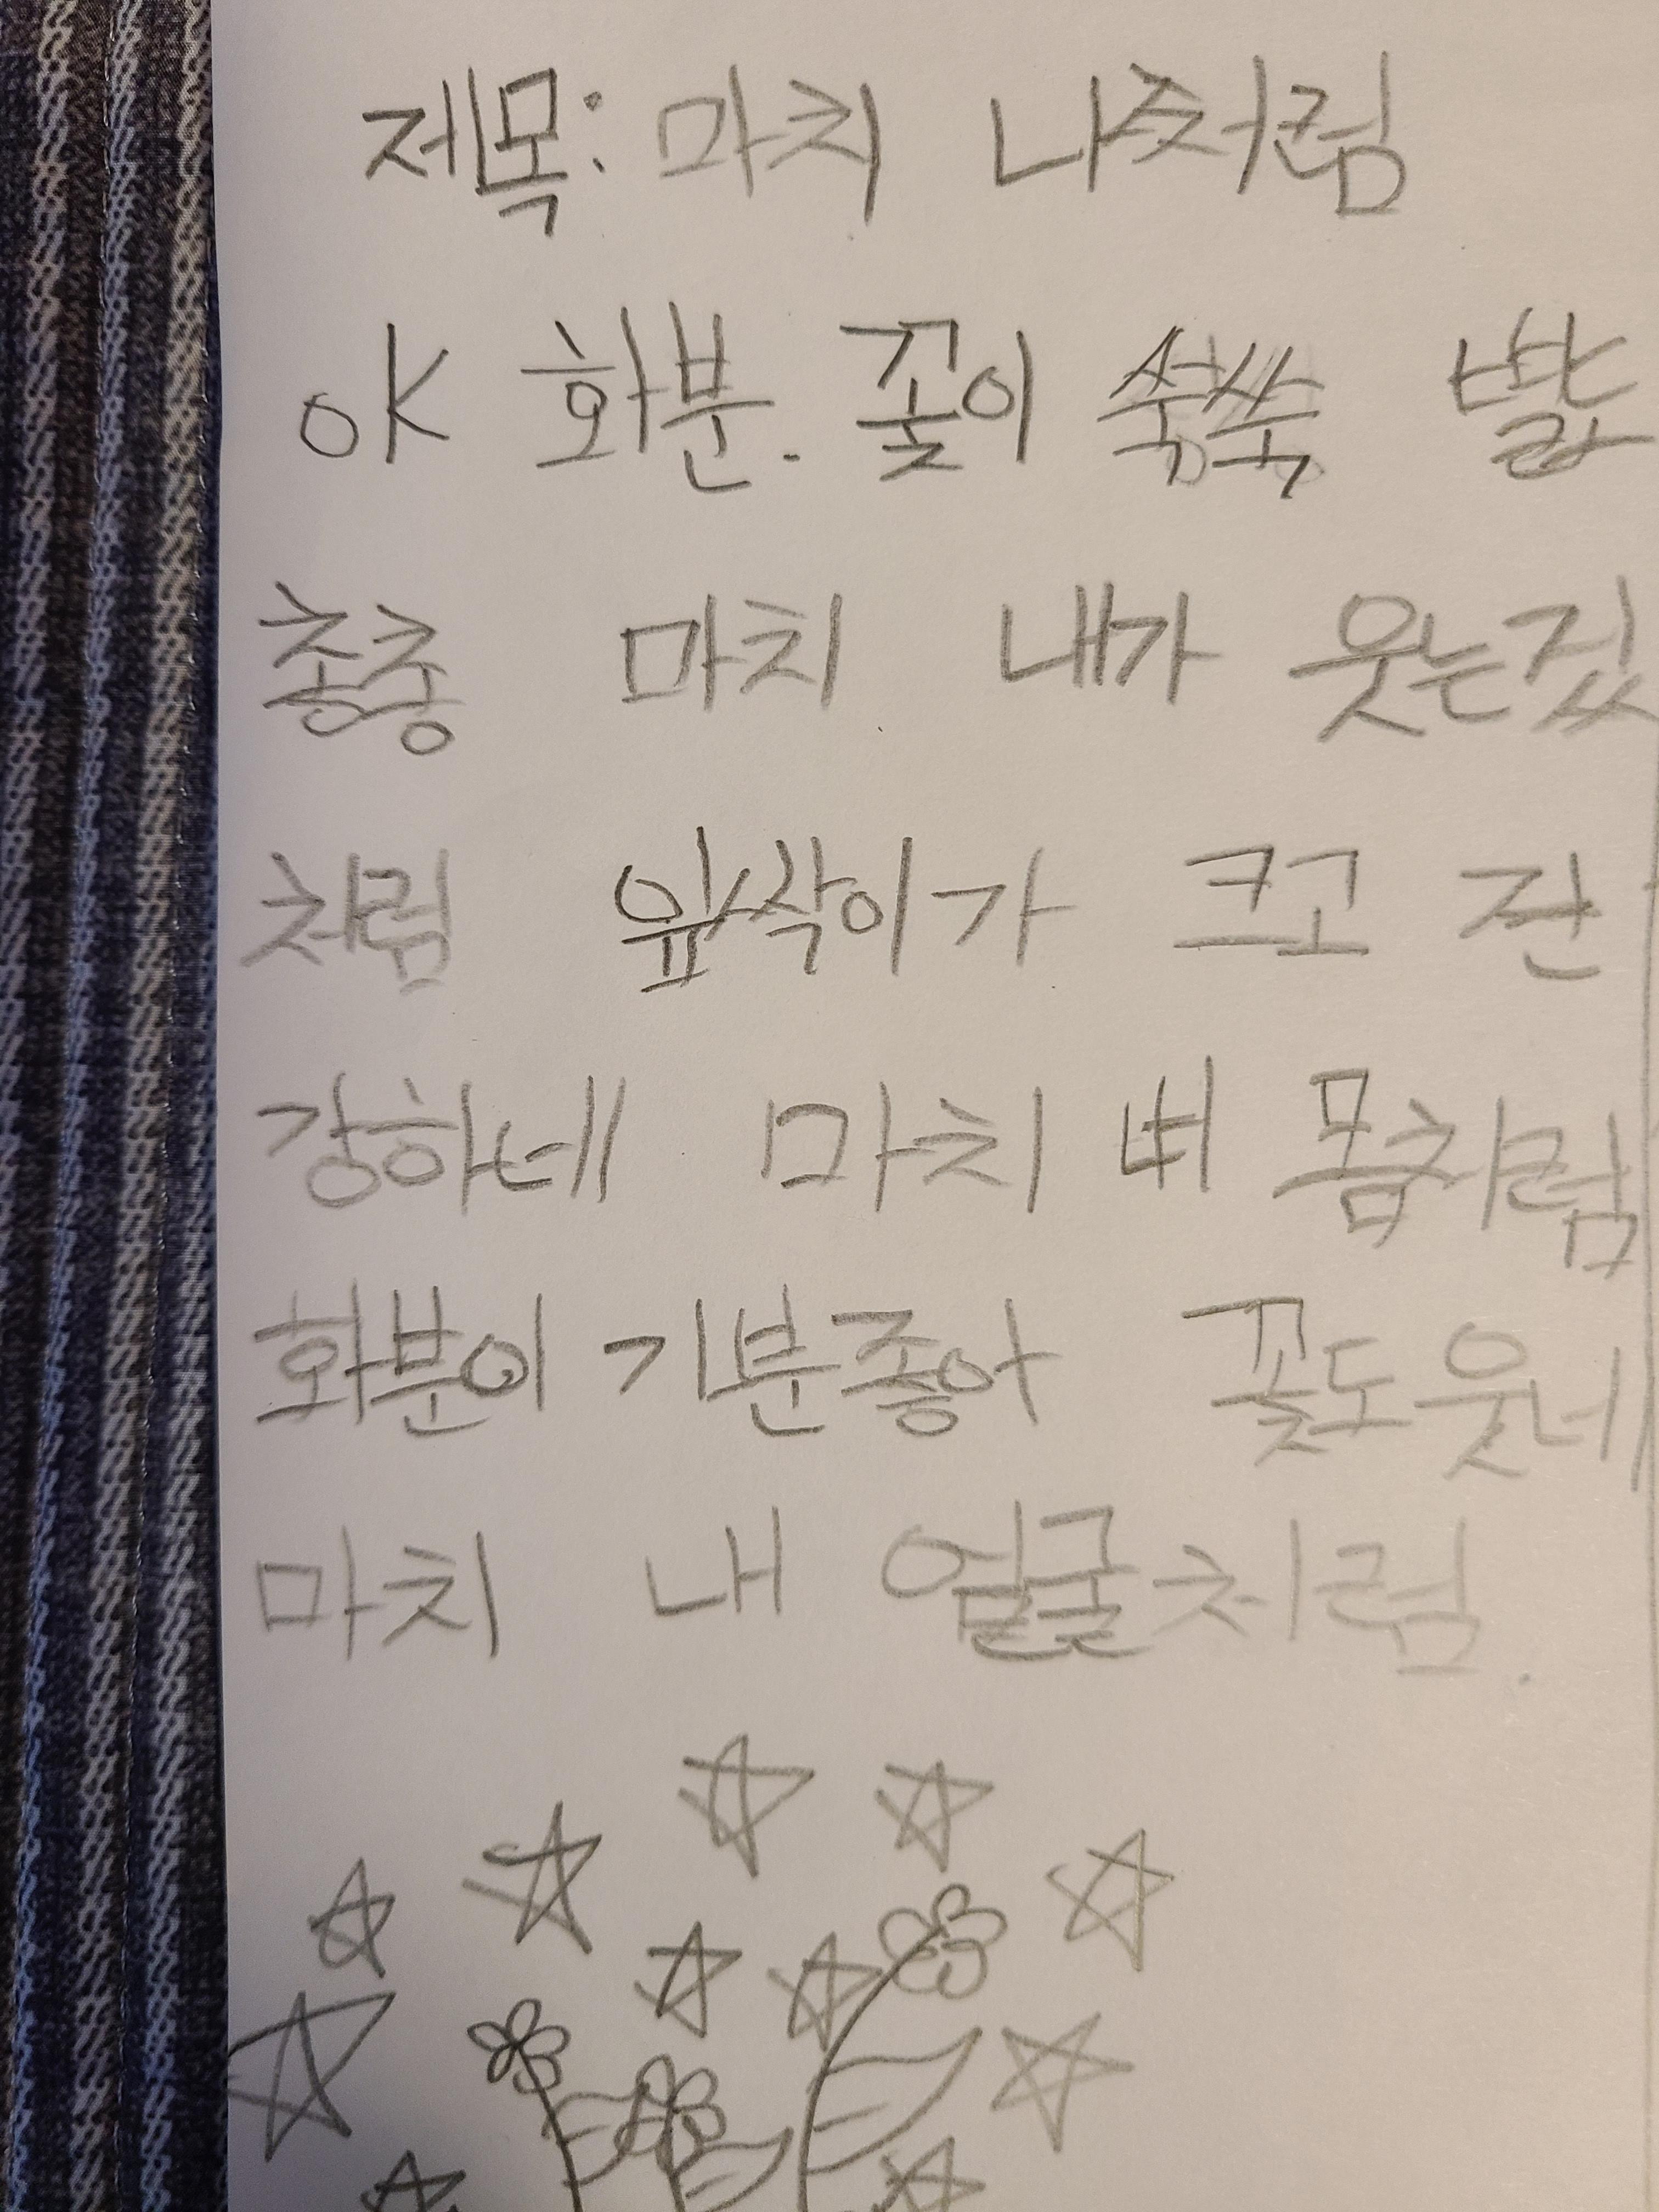 제목: 마치 나처럼
OK 화분. 꽃이 쑥쑥
총총 마치 내가 웃는
처럼 잎싹이가 크고 진
강하네 마치 내 몸처럼
화분이 기분좋아 꽃도웃네
마치 내 얼굴처럼.